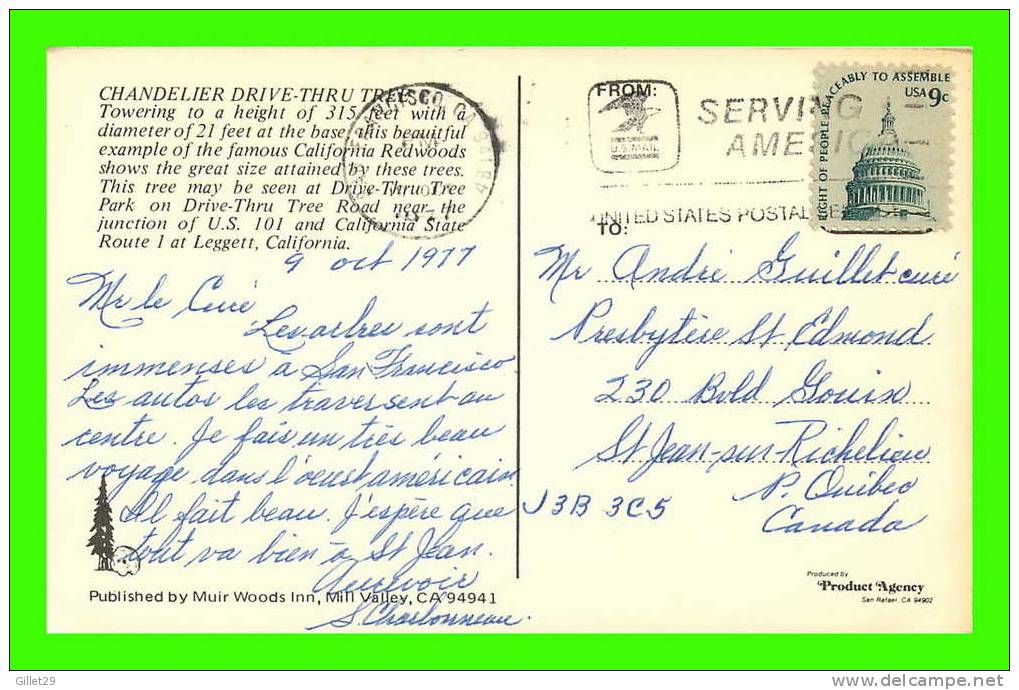 CHANDELIER DRIVE-THRU TREE
Towering to a height of 315 feet with a
diameter of 21 feet at the base, this beauitful
example of the famous California Redwoods
shows the great size attained by these trees.
This tree may be seen at Drive-Thru Tree
Park on Drive-Thru Tree Road near the
junction of U.S. 101 and California State
Route 1 at Leggett, California.
9 oct 1977
Mr le Curé
Les arbres sont
immenses à San Francisco
Les autos les traversent au
centre. Je fais un très beau
voyage dans l'ouest américain.
Il fait beau. J'espère que
tout va bien à St Jean.
Aurevoir
S. Charbonneau.
Published by Muir Woods Inn, Mill Valley, CA 94941
FROM:
U.S. MAIL
SERVING
AMERICA
UNITED STATES POSTAL
RIGHT OF PEOPLE PEACEABLY TO ASSEMBLE
USA 9c
TO:
Mr André Guillet curé
Presbytère St Edmond
230 Bvld Gouin
St Jean-sur-Richelieu
P. Québec
J3B 3C5
Canada
Produced by
Product Agency
San Rafael, CA 94902
Gillet29
delcampe.net